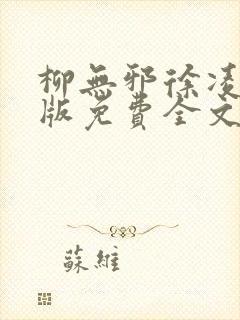 柳無邪徐凌
版免費全文
蘇維